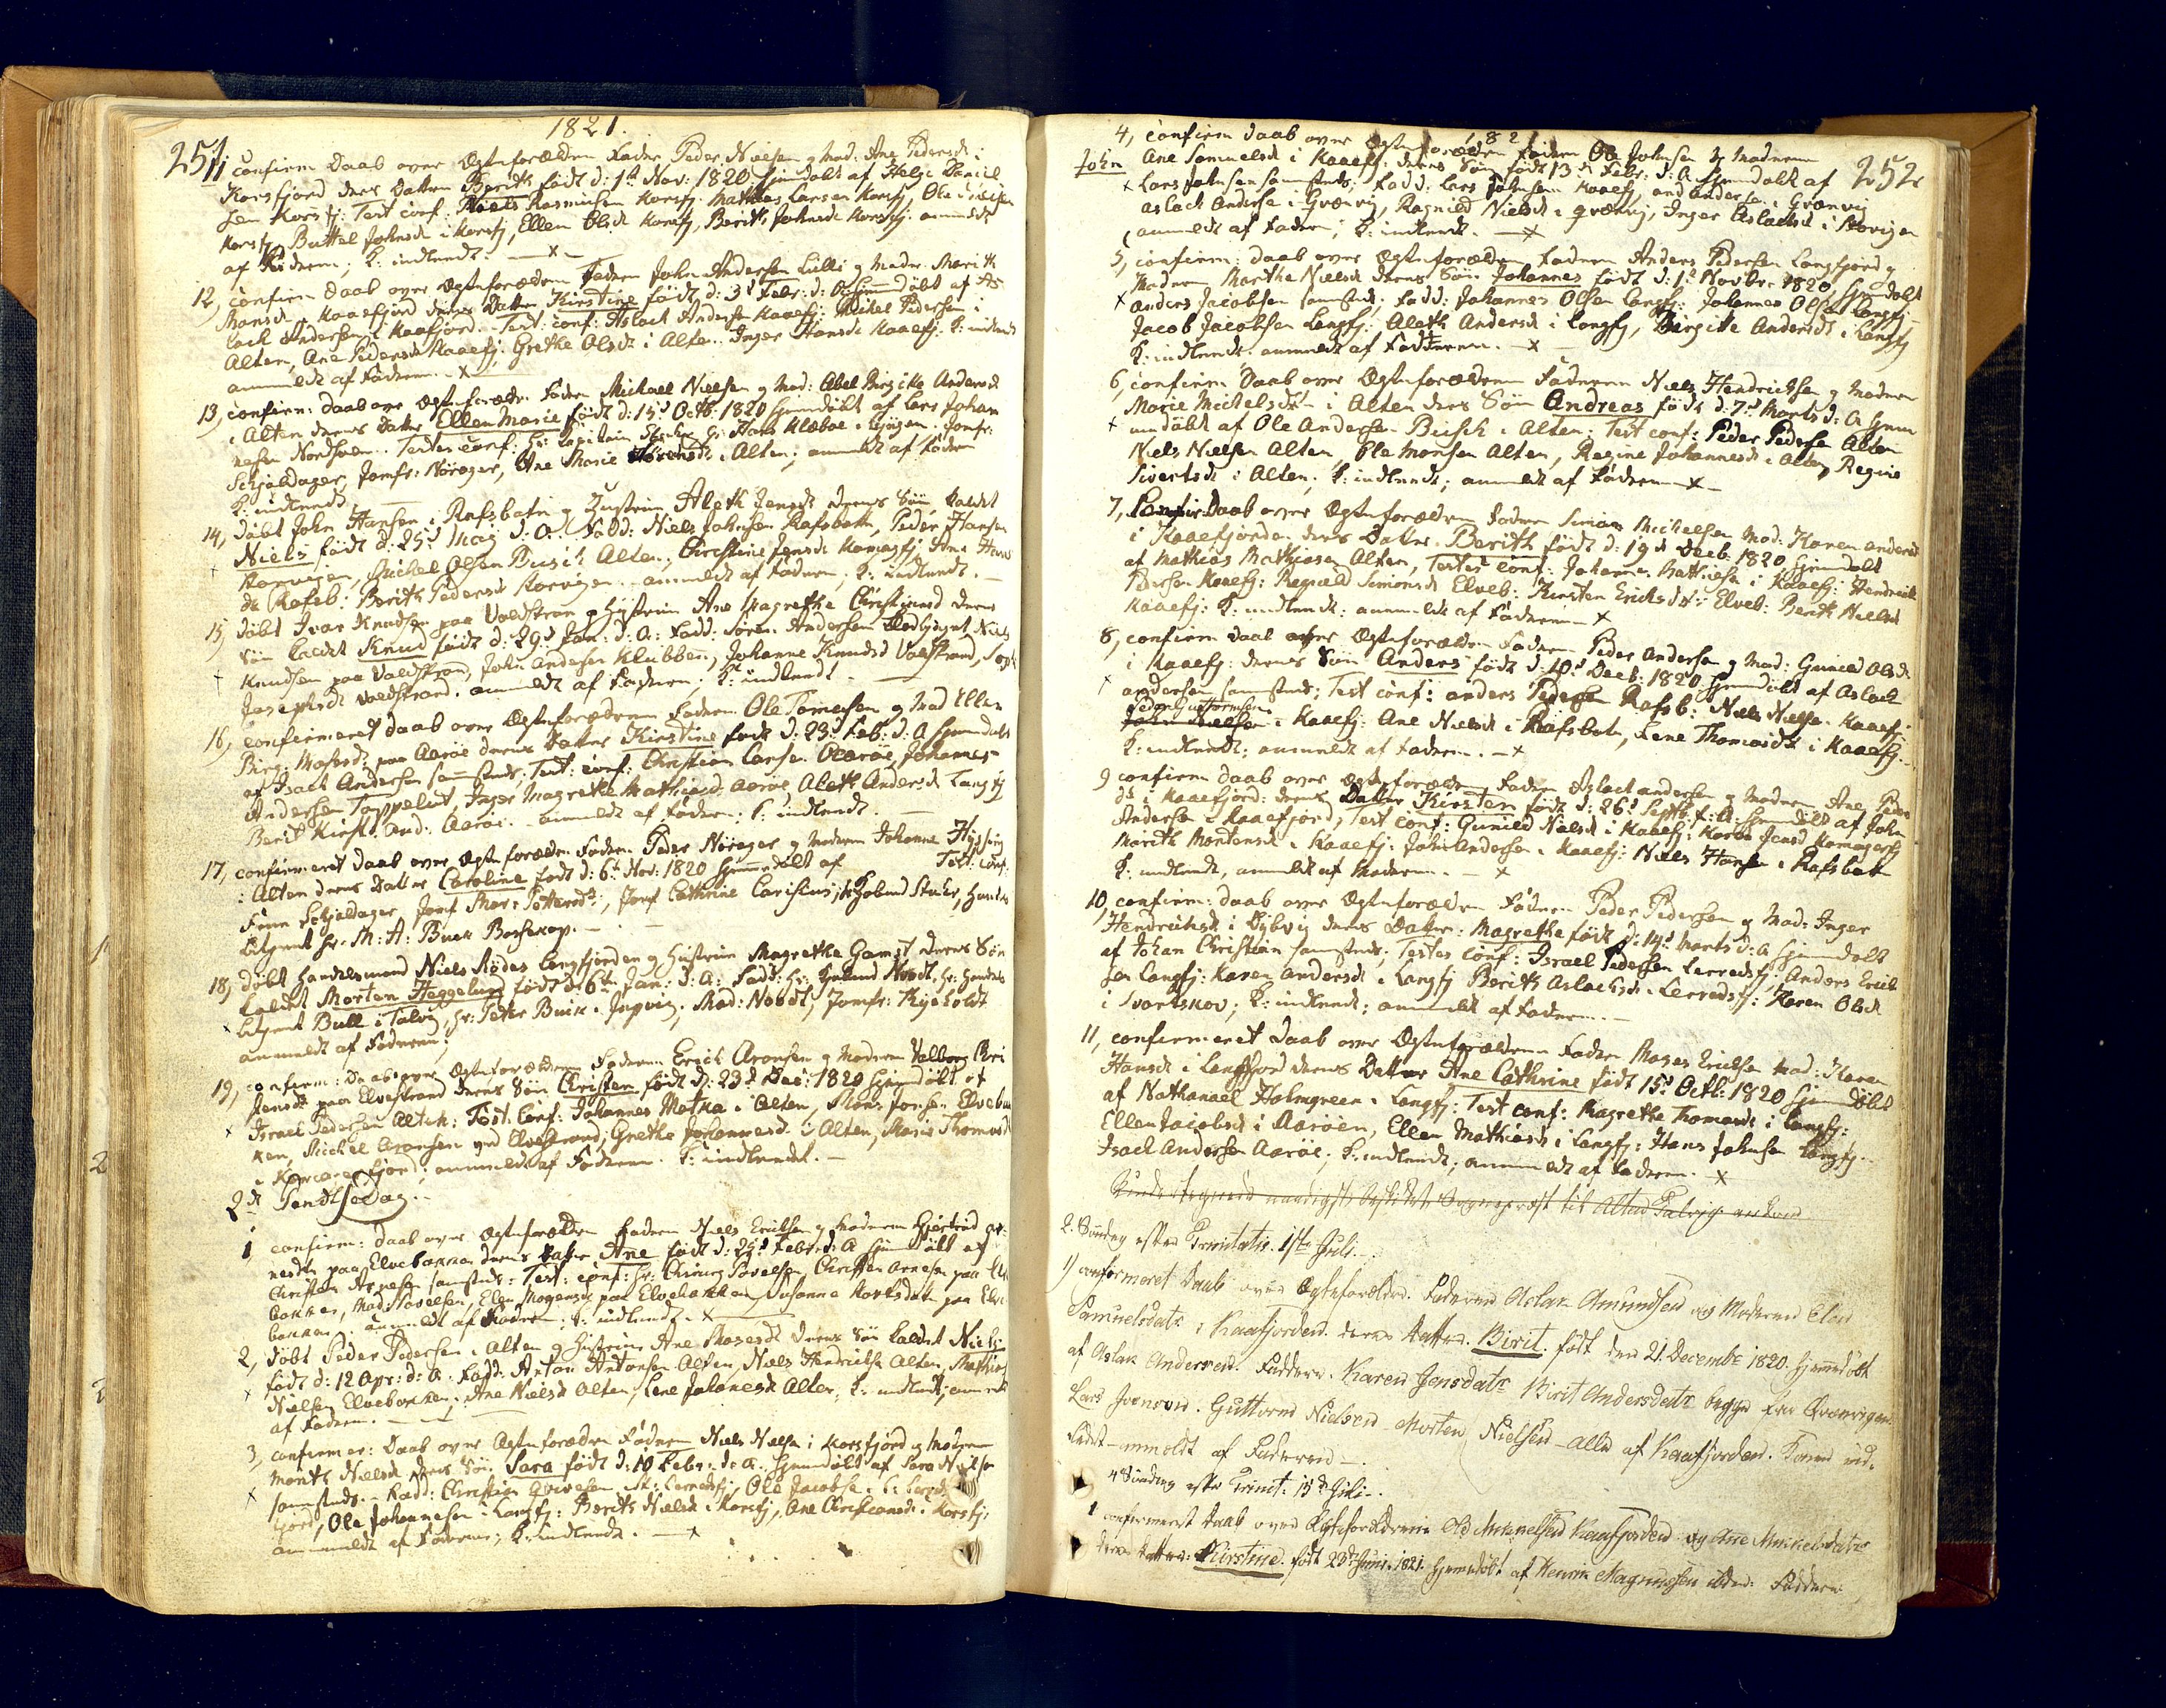 1821.
251
11, confirm Daab over Ægteforældrene Fader Peder Nielsen og Mod: Ane Pedersd: i
Korsfjord deres Datter Berith født d: 1st Nov: 1820 hjemdøbt af Helge Daniel
sen Korsfj: Test conf: Niels Rasmusen Korsfj: Mathias Larsen Korsfj, Ole
Korsfj, Buttel Johnsd i Korsfj, Ellen Olsd Korsfj, Berith Johnsd Korsfj: anmeldt
af Faderen; K: indledt.
12, confirm Daab over Ægteforældrene Faderen John Andersen Lilli og Moder: Marith
Monsd: i Kaaefjord deres Datter Kirstine født d: 3d Febr: d: A: hjemdøbt af As
lach Andersen i Kaafjord. Test: conf: Aslach Andersen Kaaefj: Michel Pedersen i
Alten, Ane Pedersd Kaaefj: Grethe Olsdr i Alten. Inger Hansd: Kaaefj: K: indledt
anmeldt af Faderen.
13, confirm: daab over Ægteforældr: Faderen Michael Nielsen og Mod: Abel Birgitte Andersd
i Alten deres Datter Ellen Marie født d: 15d Octb: 1820 hjemdøbt af Lars Johan
nesen Nordhuen. Testes conf: Hr: Capitain Hr: Hans Klæboe i Jomfr:
Schjøldager, Jomfr: Nørager, Ane Marie i Alten; anmeldt af Faderen
K: indledt.
14, døbt John Hansen i Rafsbotn og Hustrue Aleth Jensdr deres Søn kaldet
Niels født d: 25d Maj d: A. Fadd: Niels Johnsen Rafsbotn, Peder Hansen
Korvigen, Michel Olsen Busch Alten, Christine Jensdr Komagfj, Ane Hans
dr Rafsb: Berith Pedersd Korvigen. anmeldt af Faderen; K: indledt.
15, døbt Ivar Knudsen paa Valdstrand og Hustrue Ane Magrethe Christiansd deres
Søn kaldet Knud født d: 29d Jan: d: A: Fadd: Søren Andersen Niels
Knudsen paa Valdstrand, John Andersen Klubben, Johanne Knudsd Valdstrand,
Josephsdr Valdstrand. anmeldt af Faderen; K: indledt
16, confirmeret daab over Ægteforældrene Faderen Ole Tomesen og Mod Ellen
Birg: paa Aarøe deres Datter Kirstine født d: 23d Feb: d: A hjemdøbt
af Isach Andersen samsteds; Test: conf: Christian Larsen Aarøe, Johannes
Andersen Tappeluft, Inger Magrethe Mathiasd: Aarøe, Aleth Andersdr Langfj
Berit Kirst: And: Aarøe. anmeldt af Faderen. K: indledt.
17, confirmeret daab over Ægteforældr: Faderen Peder Nørager og Moderen Johanne
i Alten deres Datter Caroline født d: 6t Nov: 1820 hjemmedøbt af Test: conf:
Schjeldager, Jomf Cathrine
Hr: M: A: Buck Bossekop.
18, døbt Handelsmand Niels Røder Langfjorden og Hustrue Magrethe Gamst deres Søn
kaldet Morten Heggelund født d: 6te Jan: d: A: Fadd: Hr: Nordt, Hr: Handels
Bull i Talvig, Hr: Peter Buck i Mad: Nordt, Jomfr:
anmeldt af Faderen;
19, confirm: Daab over Ægteforældrene Faderen Erich Aronsen og Moderen Valborg
Jensdr paa Elvestrand deres Søn Christen født d: 23d Dec: 1820 hjemdøbt af
Israel Pedersen Alten: Test. Conf: Johannes Motka i Alten, Mons Jonsen Elvebac
ken, Michel Aronsen ved Elvestrand, Grethe Johannesd i Alten, Marie Thomasd
i; anmeldt af Faderen. K: indledt.
2d Pentsedag.
1 confirm: daab over Ægteforældrene Faderen Niels Erichsen og Moderen Gjertrud
paa Elvebakken deres Datter Ane født d: 25d Febr: d: A hjemdøbt af
Christen Arnesen samsteds: Test: conf: Hr: Chirurg Povelsen, Christen Arnesen paa
bakken, Mad: Povelsen, Elen Mogensdr paa Elvebakken, Susanne paa Elve
bakken: anmeldt af Faderen; K: indledt.
2, døbt Peder Pedersen i Alten og Hustrue Ane Mosesdr deres Søn kaldet Niels
født d: 12 Apr: d: A. Fadd: Anton Antonsen Alten, Niels Hendrichsen Alten, Mathias
Nielsen Elvebakken, Ane Nielsd Alten, Lene Johanesdr Alten, K: indledt; anmeldt
af Faderen.
3, confirmer: Daab over Ægteforældre Faderen Niels Nielsen i Korsfjord og Moderen
Nielsd deres Søn Sara født d: 10 Febr: d: A. hjemdøbt af Lars Nielsen
samsteds. Fadd: Christian Lerredsfj, Ole Jacobsen
fjord, Ole Johannesen i Langfj: Berith Nielsd i Korsfj, Ane Christiansd: i Korsfj:
anmeldt af Faderen; K: indledt.
1821
252
John
4, confirm daab over Ægteforældrene Faderen Ole Johnsen og Moderen
Ane Samuelsd i Kaaefj: deres Søn født 13d Febr: d: A: hjemdøbt af
Lars Johnsen samsteds; Fadd: Lars Johnsen Kaaefj, And Andersen i Qvænvig
Aslach Andersen i Qvænvig, Ragnild Nielsd i Qvænvig, Inger Aslachsd i Storvigen
anmeldt af Faderen; K: indledt.
5, confirm: daab over Ægteforældrene Faderen Anders Pedersen Langfjord og
Moderen Marthe Nielsd deres Søn Johannes født d: 1d Novbr. 1820 hjemdøbt
Anders Jacobsen samsteds; Fadd: Johannes Olsen Langfj: Johannes Olsen Langfj.
Jacob Jacobsen Langfj: Aleth Andersd i Langfj, Birgitte Andersdr i Langfj
K: indledt. anmeldt af Faderen.
6, confirm Daab over Ægteforældrene Faderen Niels Hendrichsen og Moderen
Marie Michelsdr i Alten deres Søn Andreas født d: 7d Marts d: A hjem
medøbt af Ole Andersen Busch i Alten; Test conf: Peder Pedersen Alten
Niels Nielsen Alten, Ole Monsen Alten, Regine Johannesdr i Alten, Regine
Sivertsd i Alten; K: indledt; anmeldt af Faderen
7, Confir: Daab over Ægteforældrene Faderen Simon Michelsen Mod: Karen Andersd
i Kaaefjorden deres Datter Berith født d: 19d Decb: 1820 hjemdøbt
af Mathias Mathiasen Alten, Testes conf: Johannes Mathisen i Kaaefj: Hendrich
Pedersen Kaaefj: Ragnild Simonsd Elveb: Kirsten Erichsdr: Elveb: Berit Nielsd
Kaaefj: K: indledt: anmeldt af Faderen
8, confirm Daab over Ægteforældre Faderen Peder Andersen og Mod: Gunild Olsdr
i Kaaefj: deres Søn Anders født d: 10d Decb: 1820 hjemdøbt af Aslach
Andersen samsteds; Test conf: Anders Pedersen Rafsb: Niels Nielsen Kaaefj:
Peder Guttormsen
John Nielsen i Kaaefj: Ane Nielsd i Rafsbotn, Lene Thomasdr i Kaaefj.
K: indledt: anmeldt af Faderen.
9 confirm daab over Ægteforældr: Faderen Aslach Andersen og Moderen Ane Peders
dr i Kaaefjord: deres Datter Kirsten født d: 26d Septb: f: A: hjemdøbt af John
Andersen i Kaaefjord, Test conf: Gunild Nielsd i Kaaefj: Karen Jensd Komagerfj
Marith Mortensd i Kaaefj: John Andersen i Kaaefj: Niels Hansen i Rafsbotn
K: indledt, anmeldt af Moderen.
10, confirm: daab over Ægteforældre Faderen Peder Pedersen og Mod: Inger
Hendrichsd i Dybvig deres Datter: Magrethe født d: 14d Marts d: A hjemdøbt
af Johan Christian samsteds; Testes conf: Israel Pedersen Lerredsfj: Anders Erich
sen Langfj: Karen Andersd i Langfj Berith Aslachsd i Lerredsfj: Karen Olsd
i Svartskov; K: indledt; anmeldt af Faderen.
11, confirmeret Daab over Ægteforældrene Faderen Moses Erichsen Mod: Karen
Hansd i Langfjord deres Datter Ane Cathrine født 15d Octb: 1820 hjemdøbt
af Nathanael Holmgreen i Langfj: Test conf: Magrethe Thomasd i Langfj:
Ellen Jacobsd i Aarøen, Ellen Mathiasd i Langfj: Hans Johnsen Langfj.
Isach Andersen Aarøe; K: indledt; anmeldt af Faderen.
Undertegnede naadigst beskikket Sogneprest til Alten Talvig
2. Søndag efter Trinitatis. 1ste Juli.
1) confirmeret Daab over Ægteforældre. Faderen Aslak Amundsen og Moderen Elen
Samuelsdatr i Kaafjorden. deres Datter. Birit. født den 21. Decembr 1820. hjemmedøbt
af Aslak Andersen. Faddere. Karen Jensdatr Birit Andersdatr begge fra Qvænvigen.
Lars Guttorm Nielsen Morten Nielsen alle af Kaafjorden. Konen ind-
ledet - anmeldt af Faderen.
4 Søndag efter Trinit: 15d Juli.
1 confirmeret Daab over Ægteforældrene Ole Mikkelsen Kaafjorden og Ane Mikkelsdatr
deres Datter: Kirstine. født 23de Juni. 1821. hjemmedøbt af Henrik Magnussen Faddere.